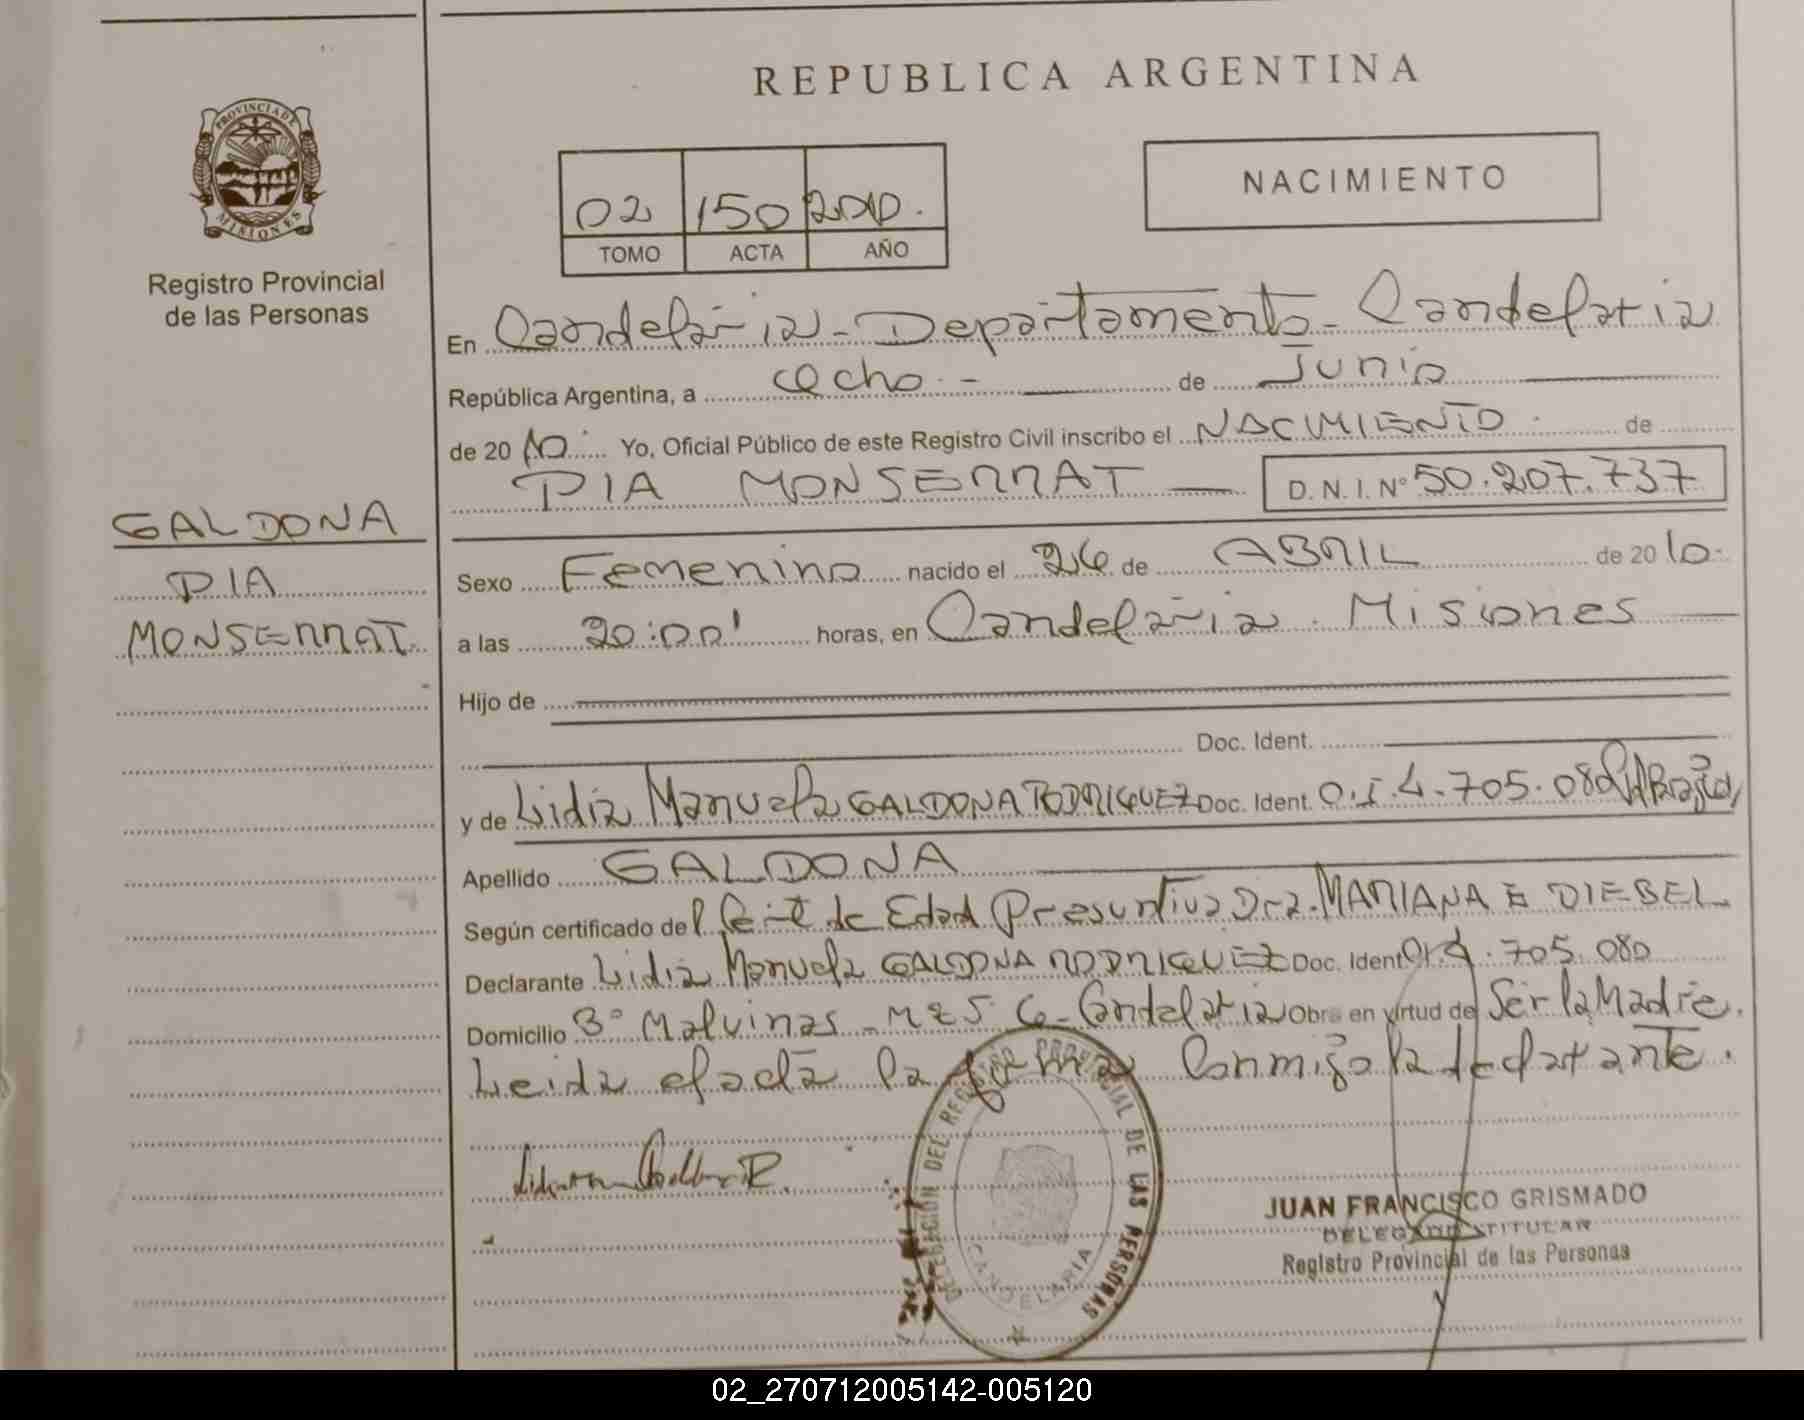 REPUBLICA ARGENTINA
PROVINCIA DE MISIONES
Registro Provincial
de las Personas
02 150 2010.
TOMO ACTA AÑO
NACIMIENTO
En Candelaria - Departamento - Candelaria
República Argentina, a ocho - de Junio
de 2010. Yo, Oficial Público de este Registro Civil inscribo el NACIMIENTO de
PIA MONSERRAT D.N.I. Nº 50.207.737
GALDONA
PIA
MONSERRAT.
Sexo Femenino nacido el 26 de ABRIL de 2010.
a las 20:00' horas, en Candelaria. Misiones
Hijo de
Doc. Ident.
y de Lidia Manuela GALDONA RODRIGUEZ Doc. Ident. C.I. 4.705.080
Apellido GALDONA
Según certificado del Cert de Edad Presuntiva Dra. MARIANA E DIEBEL
Declarante Lidia Manuela GALDONA RODRIGUEZ Doc. Ident 4.705.080
Domicilio Bº Malvinas - Candelaria Obra en virtud de Ser la Madre.
Leida el acta la firma Conmigo la declarante.
DELEGACION DEL REGISTRO PROVINCIAL DE LAS PERSONAS
CANDELARIA
JUAN FRANCISCO GRISMADO
DELEGADO TITULAR
Registro Provincial de las Personas
02_270712005142-005120